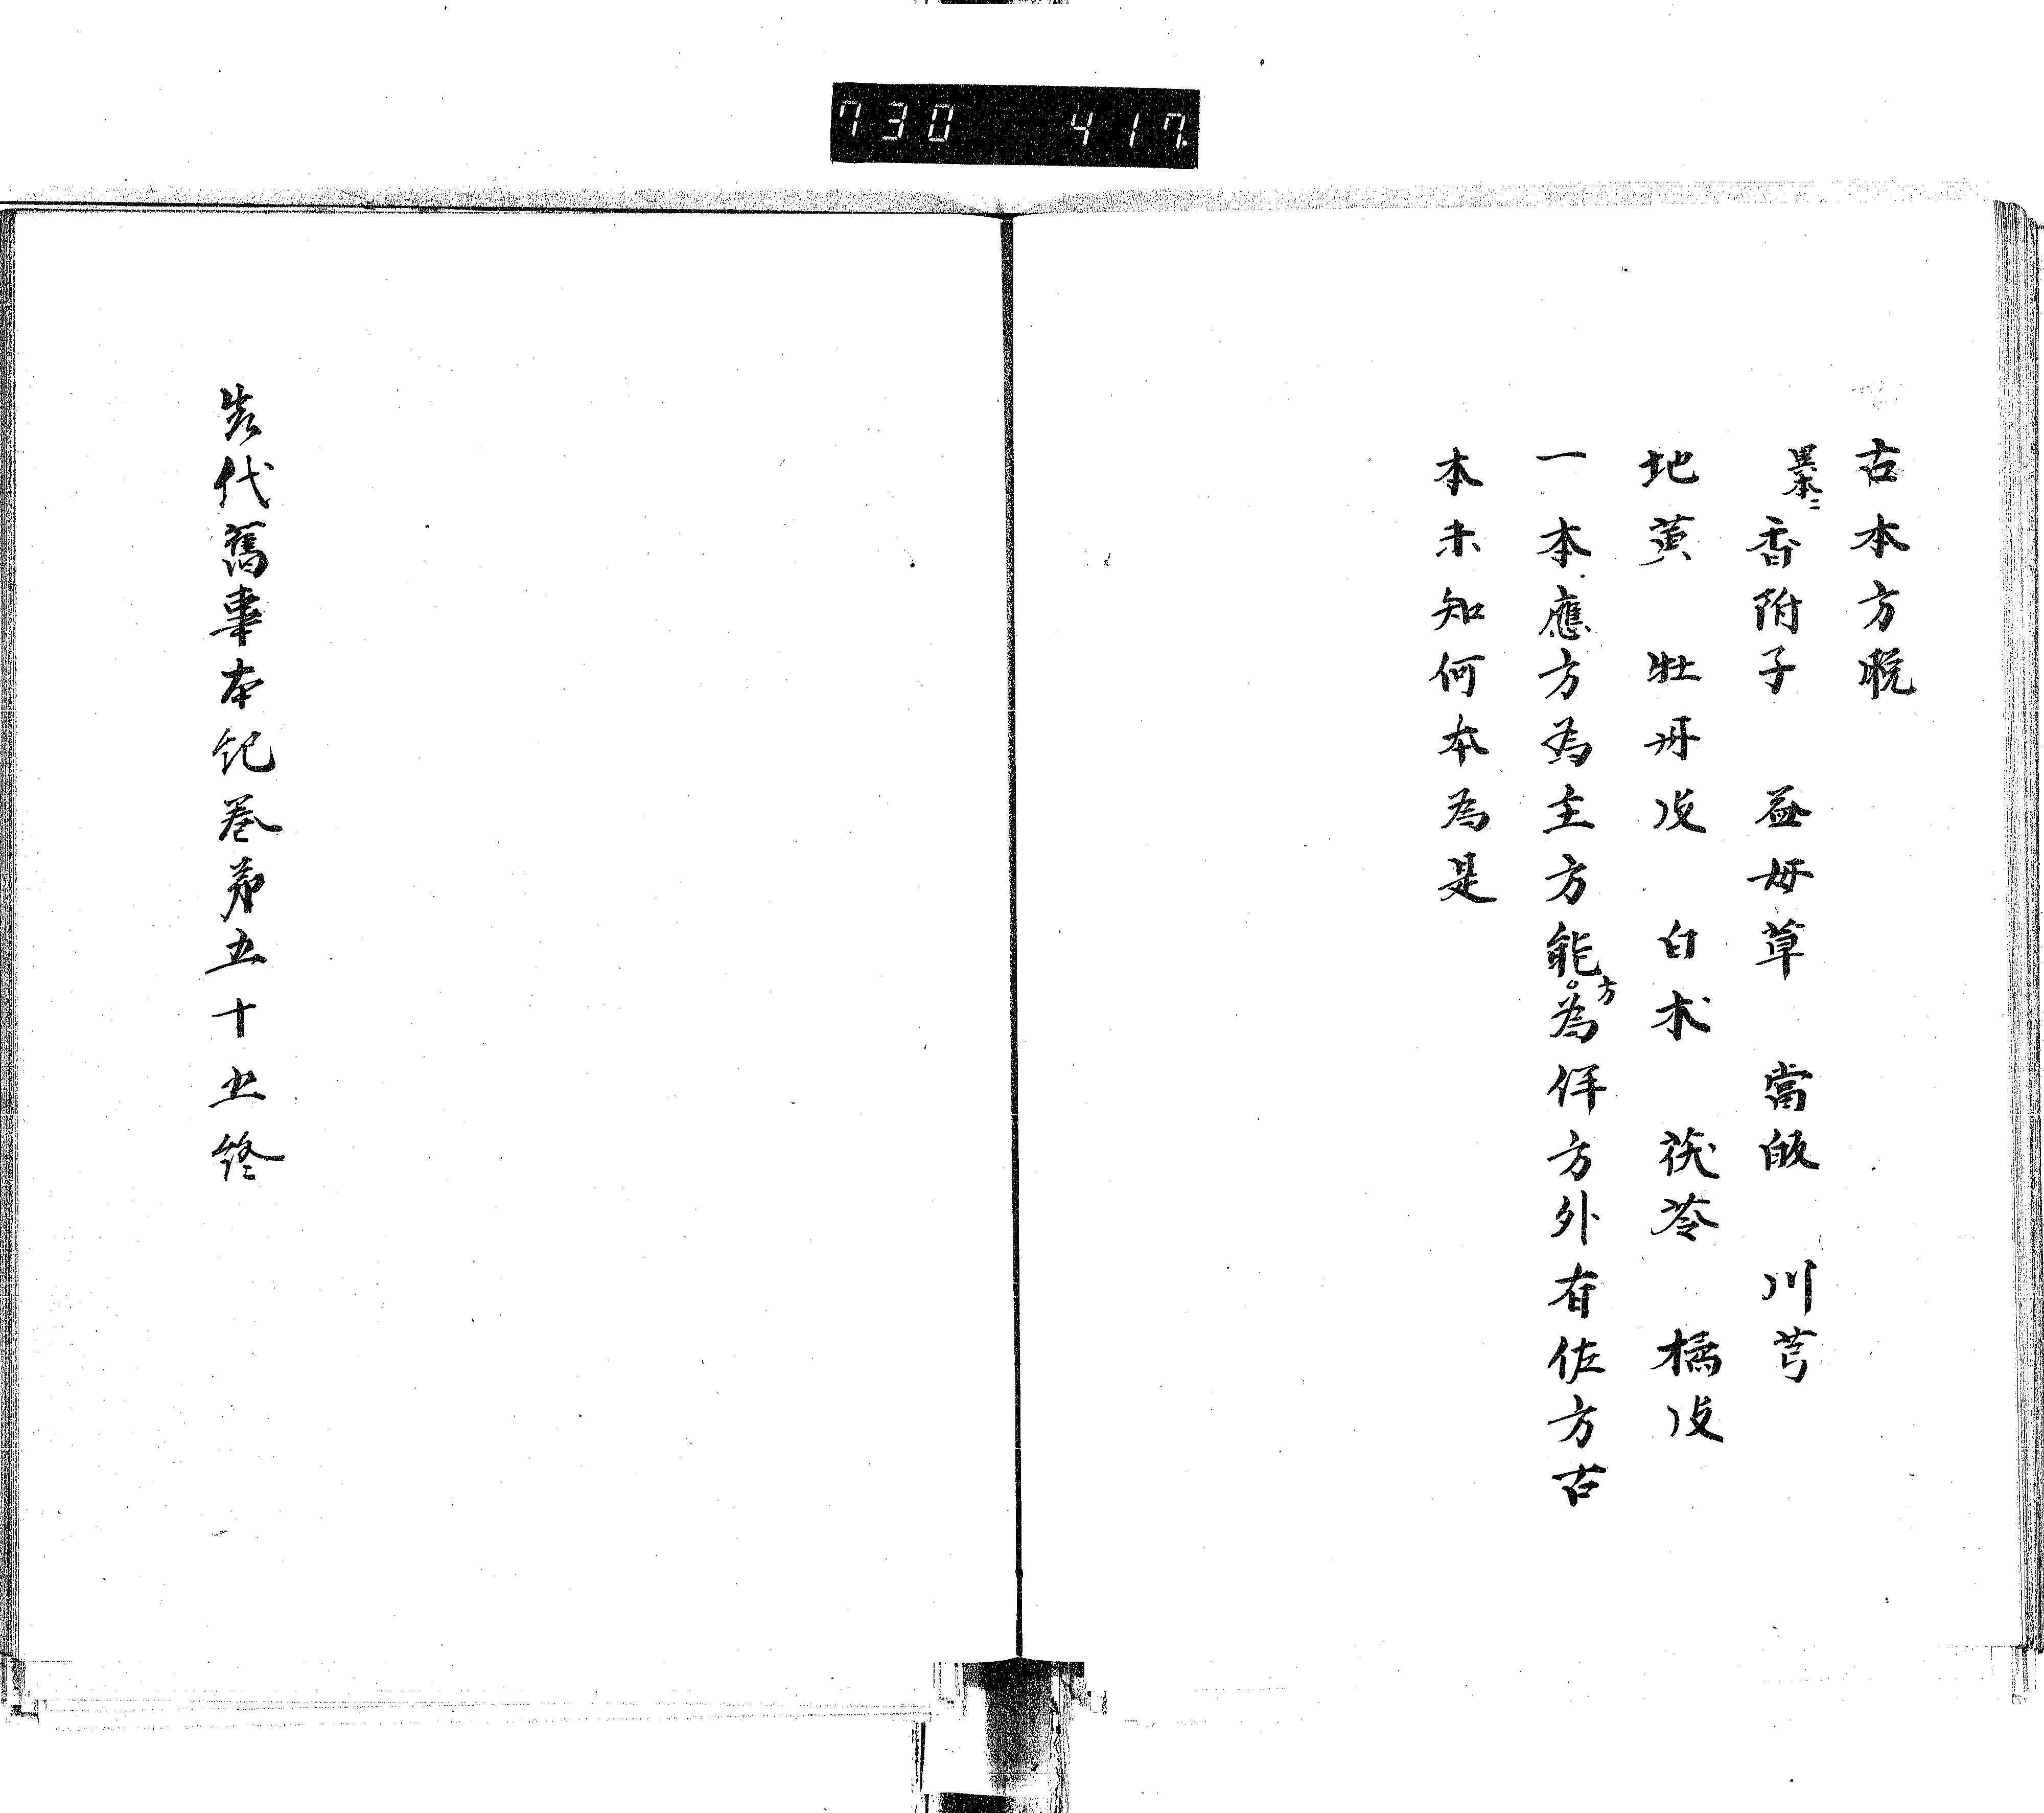 730 417
古本方脱
異本ニ
香附子 益母草 當皈 川芎
地黄 牡丹皮 白术 茯苓 橘皮
一本應方為主方能方為佯方外有佐方古
本未知何本為是
先代舊事本紀巻第五十五終